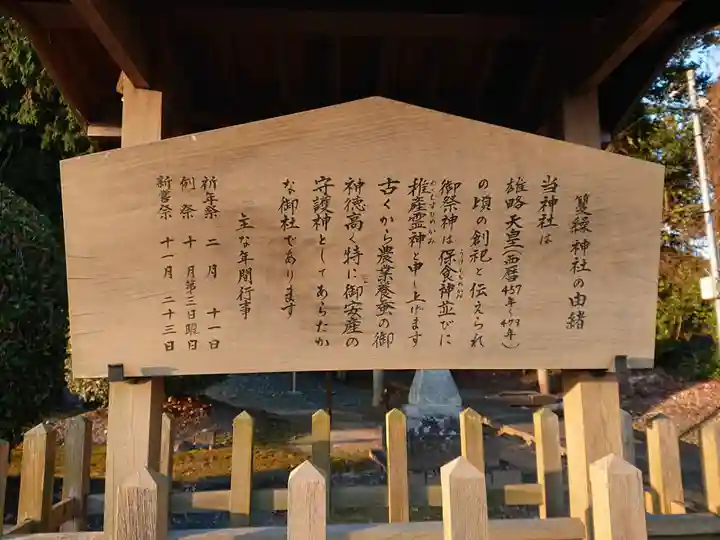 簑縁神社の由緒
当神社は
雄略天皇(西暦457年~479年)
の頃の創祀と伝えられ
御祭神は保食神並びに
稚産霊神と申し上げます
古くから農業養蚕の御
神徳高く特に御安産の
守護神としてあらたか
な御社であります
主な年間行事
祈年祭 二月 十一日
例祭 十月第三日曜日
新嘗祭 十一月 二十三日